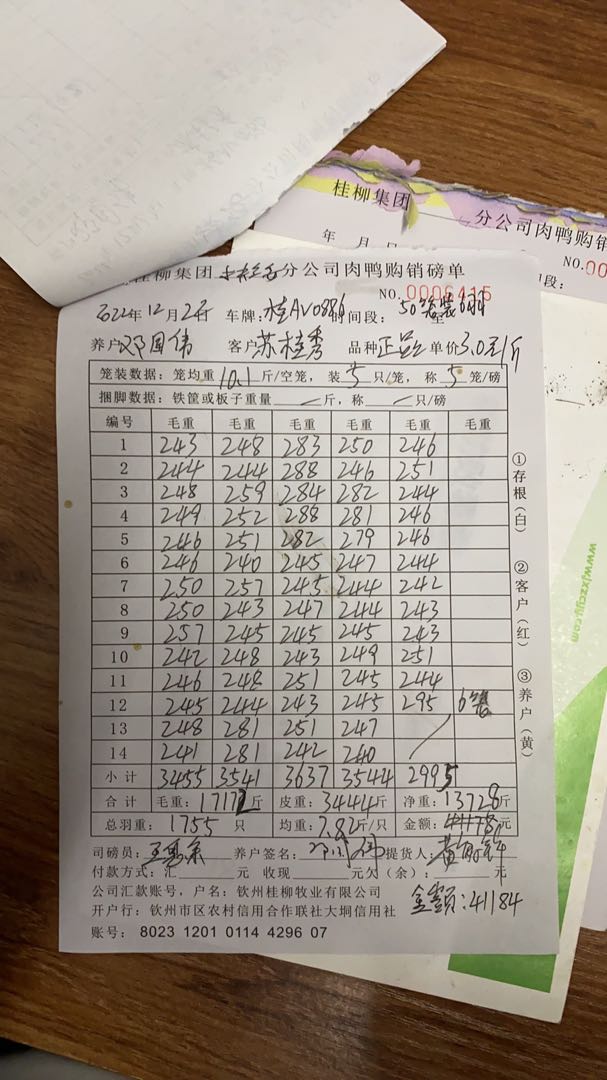 桂柳集团
分公司肉鸭购销
年 月 日
NO.
段:
桂柳集团 分公司肉鸭购销磅单
NO. 0006415
2022年12月2日 车牌:桂AV0886 时间段: 50笼装6羽 至
养户 邓国伟 客户 苏桂秀 品种 正品 单价3.0元/斤
笼装数据: 笼均重10.1斤/空笼, 装5只/笼, 称5笼/磅
捆脚数据: 铁筐或板子重量 斤, 称 只/磅
编号 毛重 毛重 毛重 毛重 毛重 毛重
1 243 248 283 250 246
2 244 244 288 246 251
3 248 259 284 282 244
4 249 252 288 281 246
5 246 251 282 279 246
6 246 240 245 247 244
7 250 257 245 244 242
8 250 243 247 244 243
9 257 245 245 245 243
10 242 248 243 249 251
11 246 248 251 245 244
12 245 244 243 245 295 6笼
13 248 281 251 247
14 241 281 242 240
小计 3455 3541 3637 3544 2995
合计 毛重:17172斤 皮重:3444斤 净重:13728斤
总羽重: 1755 只 均重:7.82斤/只 金额:41178元
司磅员: 养户签名: 邓国伟 提货人:
付款方式:汇 元 收现 元欠(余): 元
公司汇款账号,户名:钦州桂柳牧业有限公司
开户行:钦州市区农村信用合作联社大垌信用社
金额:41184
账号: 8023 1201 0114 4296 07
①存根(白) ②客户(红) ③养户(黄)
www.jxzcjy.com